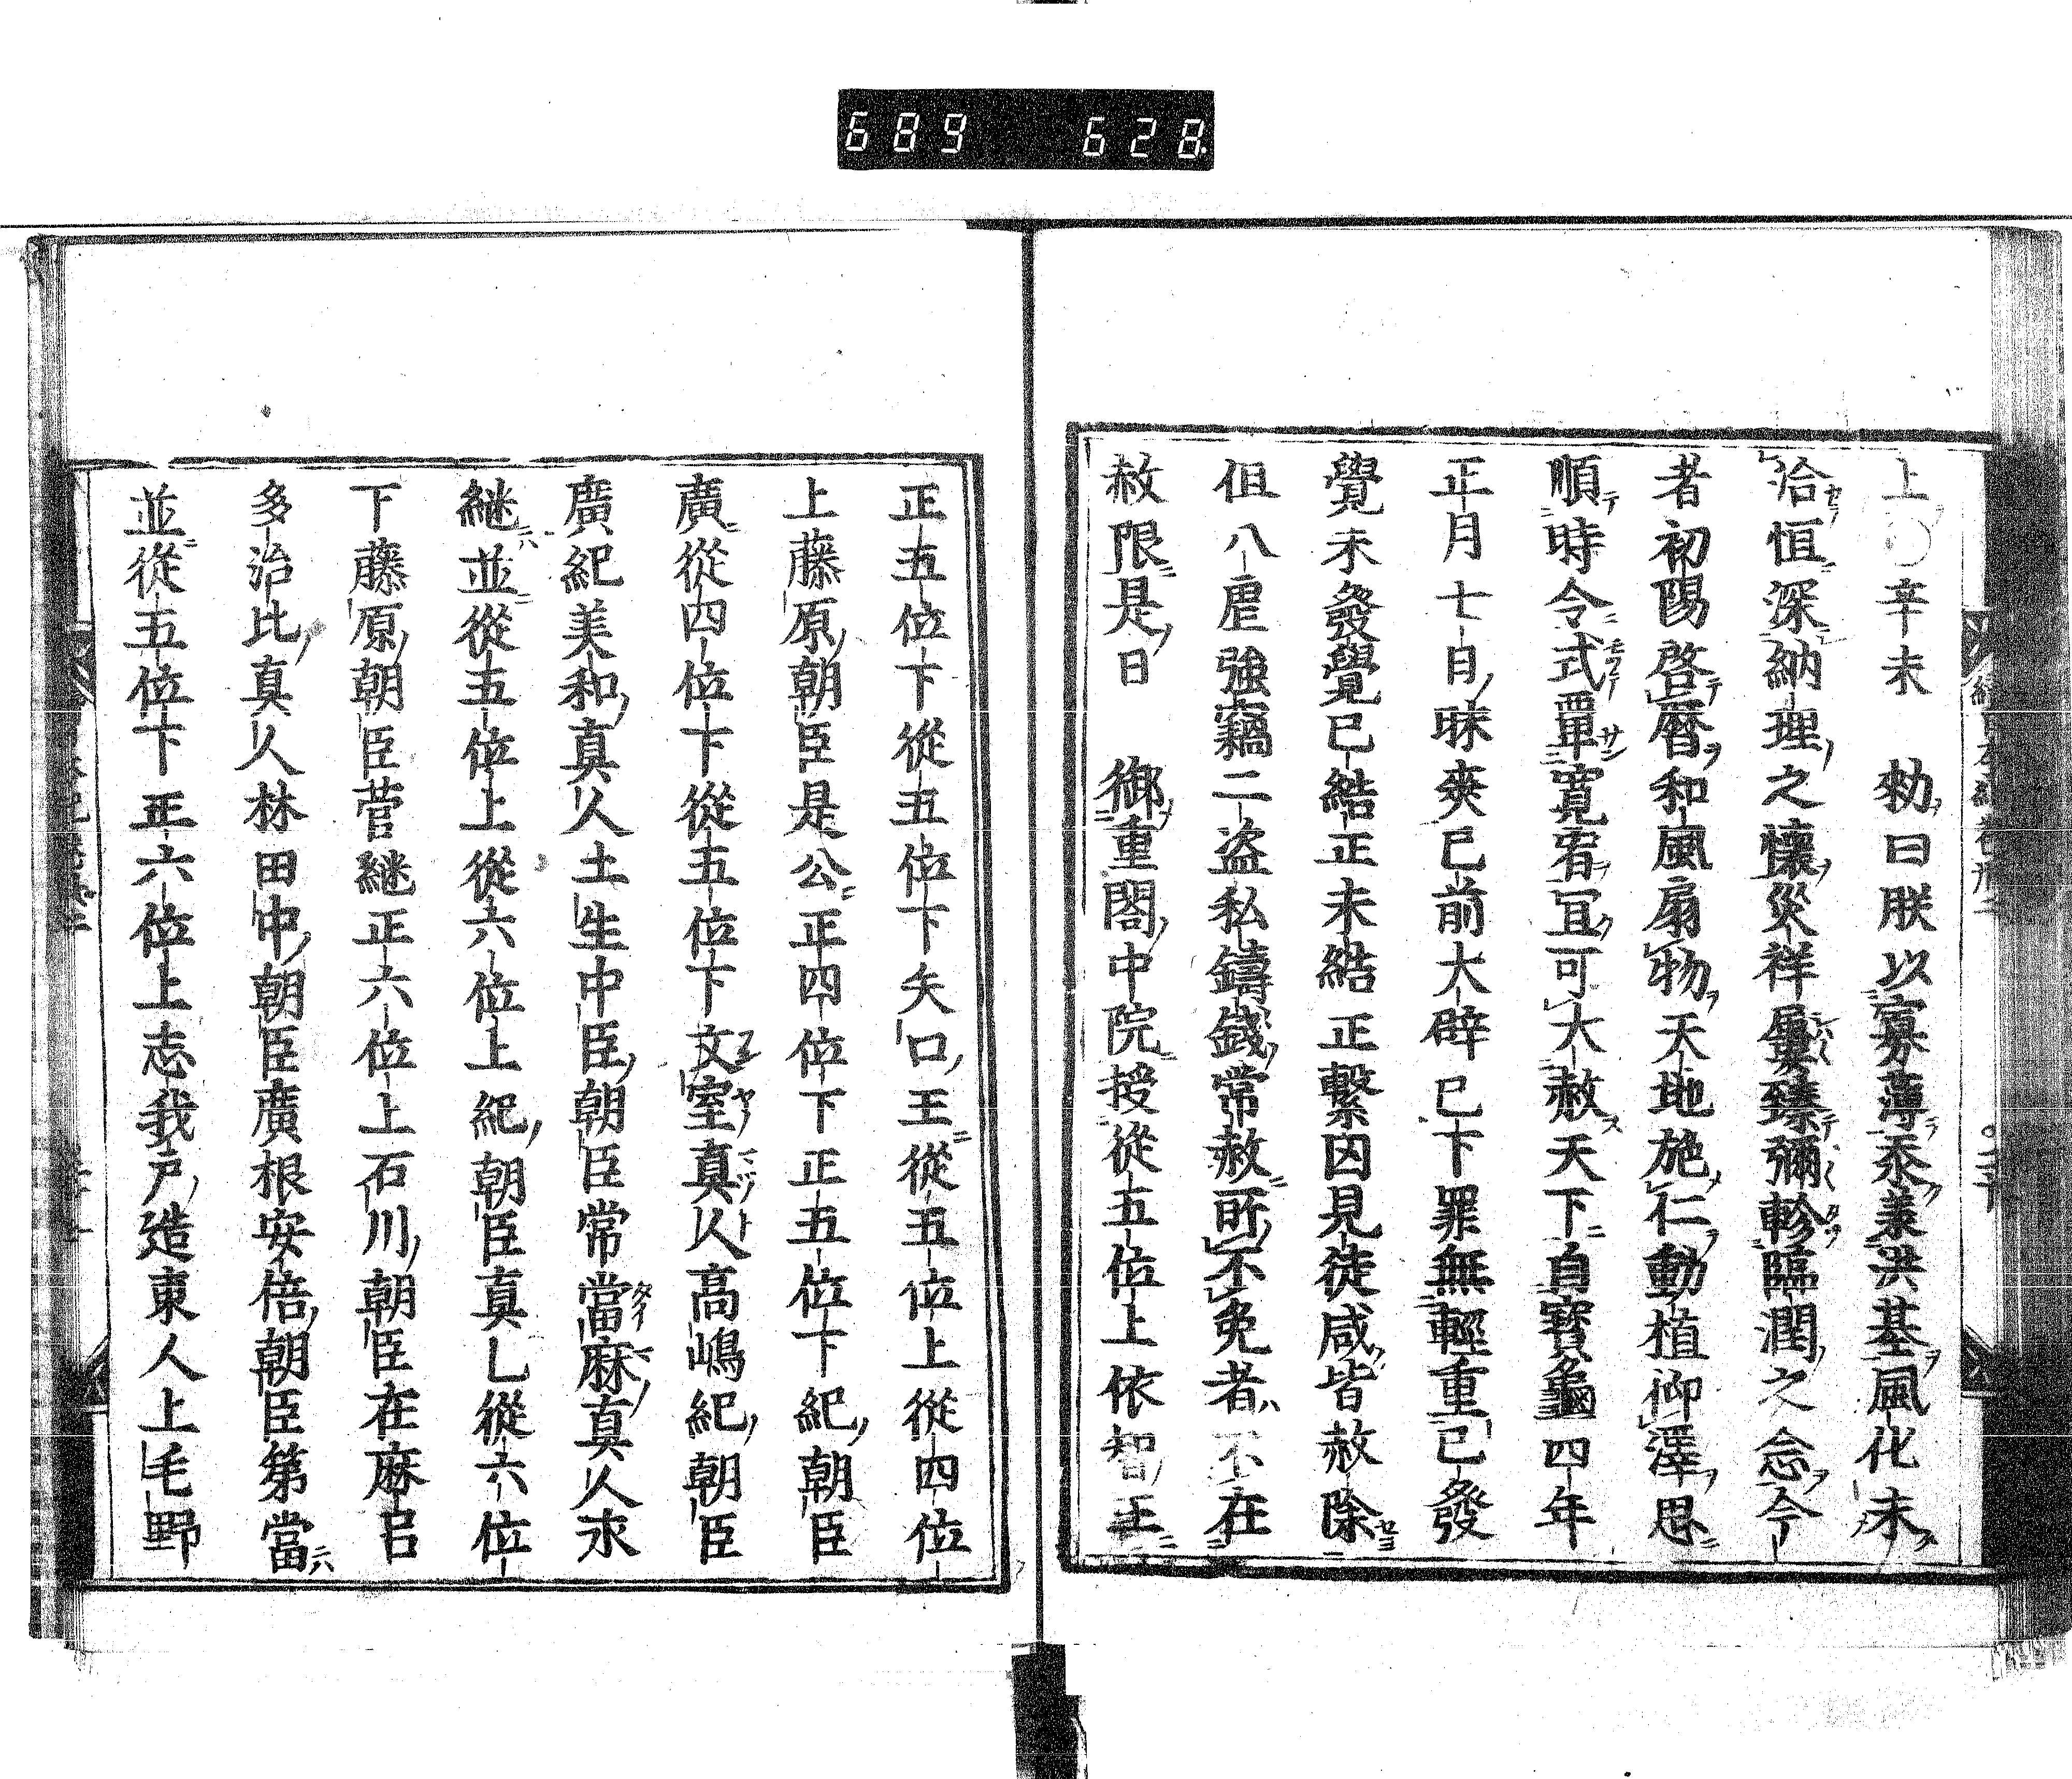 689 628
上〇辛未 勑曰朕以寡薄忝羕洪基風化未
洽恒深納理之懷災祥屢臻彌軫臨潤之念今
者初陽啓暦和風扇物天地施仁動植仰澤思
順時令式覃寛宥冝可大赦天下自寶龜四年
正月七日昧爽已前大辟已下罪無輕重已發
覺未發覺已結正未結正繫囚見徒咸皆赦除
但八虐強竊二盗私鑄錢常赦所不免者不在
赦限是日 御重閤中院授從五位上依智王
正五位下從五位下矢口王從五位上從四位
上藤原朝臣是公正四位下正五位下紀朝臣
廣從四位下從五位下文室真人高嶋紀朝臣
廣紀美和真人土生中臣朝臣常當麻真人求
継並從五位上從六位上紀朝臣真乚從六位
下藤原朝臣菅継正六位上石川朝臣在麻呂
多治比真人林田中朝臣廣根安倍朝臣第當
並從五位下正六位上志我戸造東人上毛野